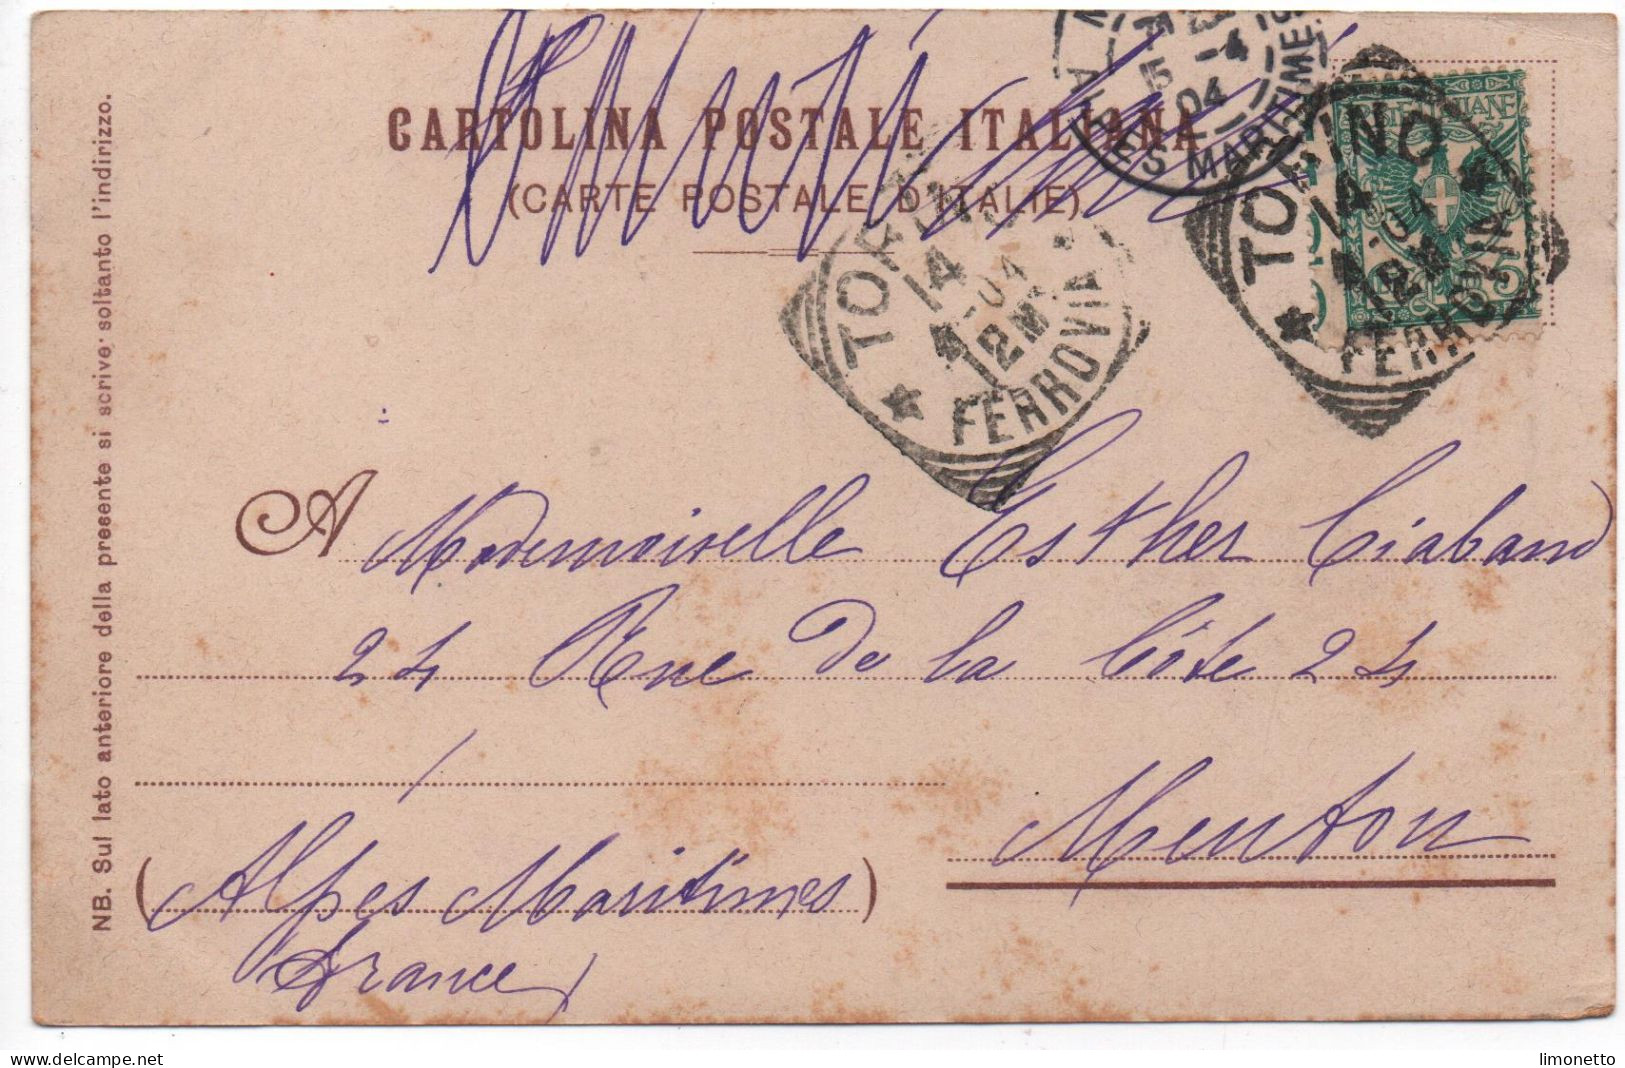 CARTOLINA POSTALE ITALIANA
(CARTE POSTALE D'ITALIE)
ALPES MARITIMES
15 4
04
TORINO
14
4 04
12 M
FERROVIA
TORINO
14
4 04
12 M
FERROVIA
NB. Sul lato anteriore della presente si scrive soltanto l'indirizzo.
A Mademoiselle Esther Ciabaud
24 Rue de la Côte 24
Menton
(Alpes Maritimes)
France
www.delcampe.net
limonetto